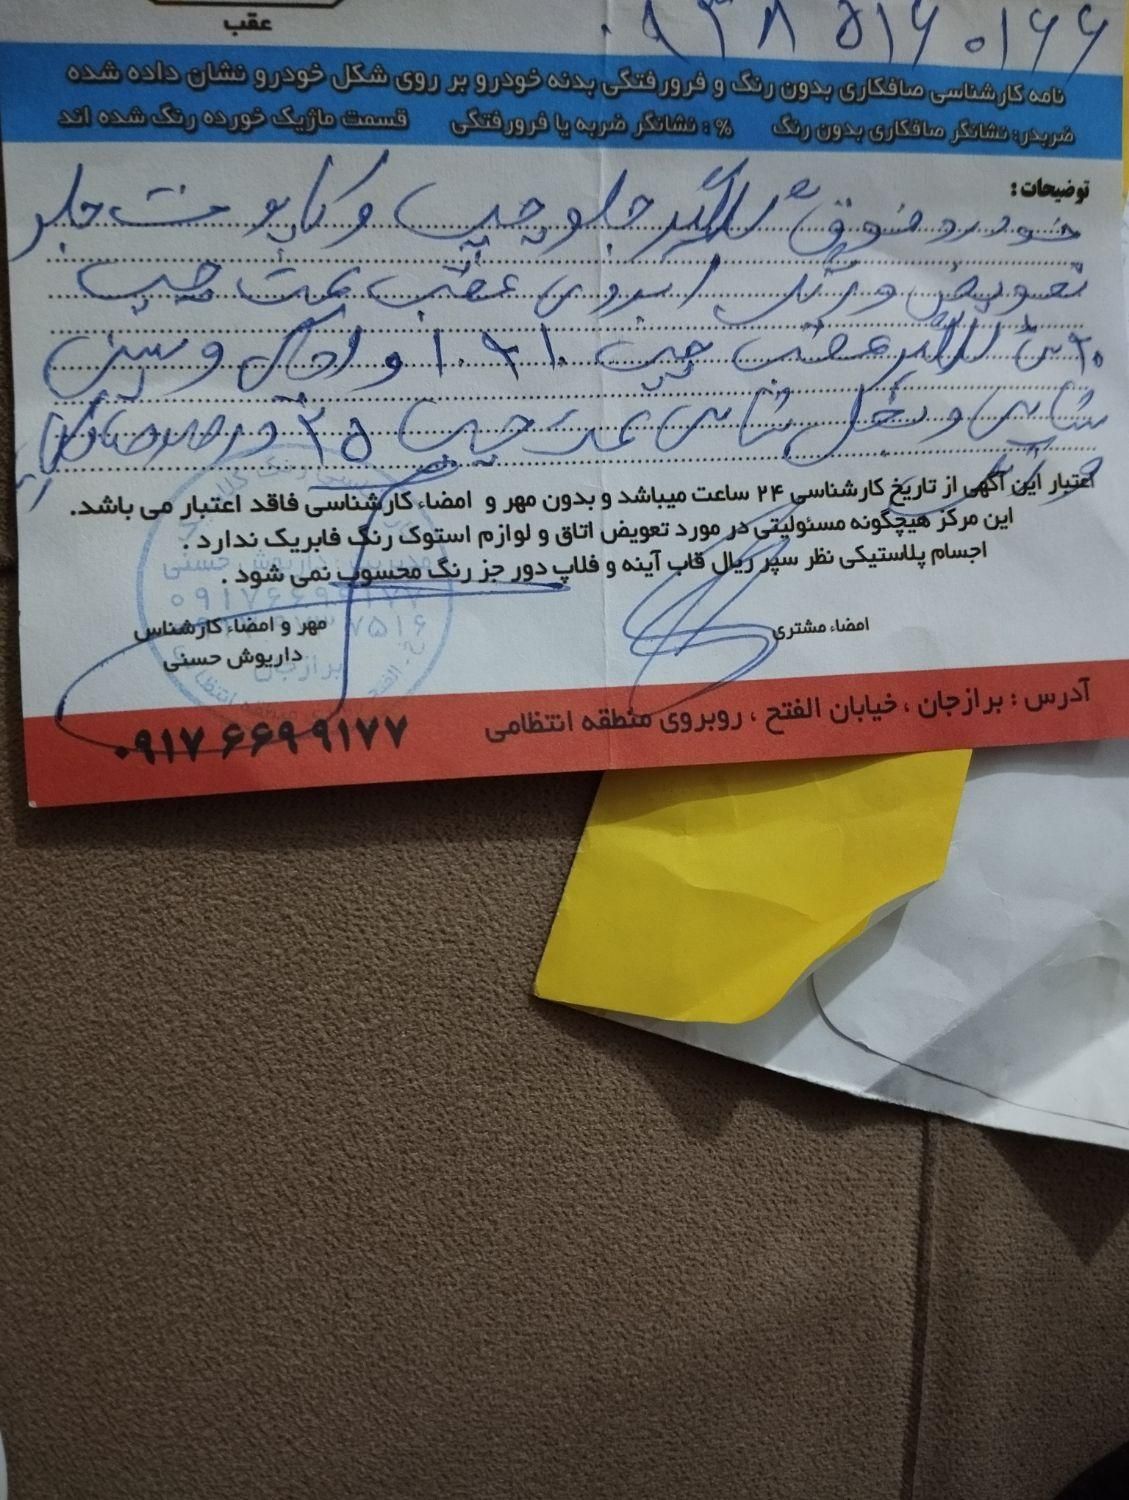 عقب
۰۹۳۸ ۵۱۶ ۰۱۶۶
نامه کارشناسی صافکاری بدون رنگ و فرورفتگی بدنه خودرو بر روی شکل خودرو نشان داده شده
ضربدر: نشانگر صافکاری بدون رنگ %: نشانگر ضربه یا فرورفتگی قسمت ماژیک خورده رنگ شده اند
توضیحات:
خودرو فوق گلگیر جلو چپ و کاپوت جلو
تعویض و رنگ ابروی عقب سمت چپ
گلگیر عقب چپ و سینی
شاسی و شاسی سمت چپ ۲۵ درصد صافکاری
اعتبار این آگهی از تاریخ کارشناسی ۲۴ ساعت میباشد و بدون مهر و امضاء کارشناسی فاقد اعتبار می باشد.
این مرکز هیچگونه مسئولیتی در مورد تعویض اتاق و لوازم استوک رنگ فابریک ندارد.
اجسام پلاستیکی نظر سپر ریال قاب آینه و فلاپ دور جز رنگ محسوب نمی شود.
داریوش حسنی
۰۹۱۷۶۶۹۹۱۷۷
برازجان
امضاء مشتری
مهر و امضاء کارشناس
داریوش حسنی
آدرس: برازجان، خیابان الفتح، روبروی منطقه انتظامی
۰۹۱۷ ۶۶۹ ۹۱۷۷